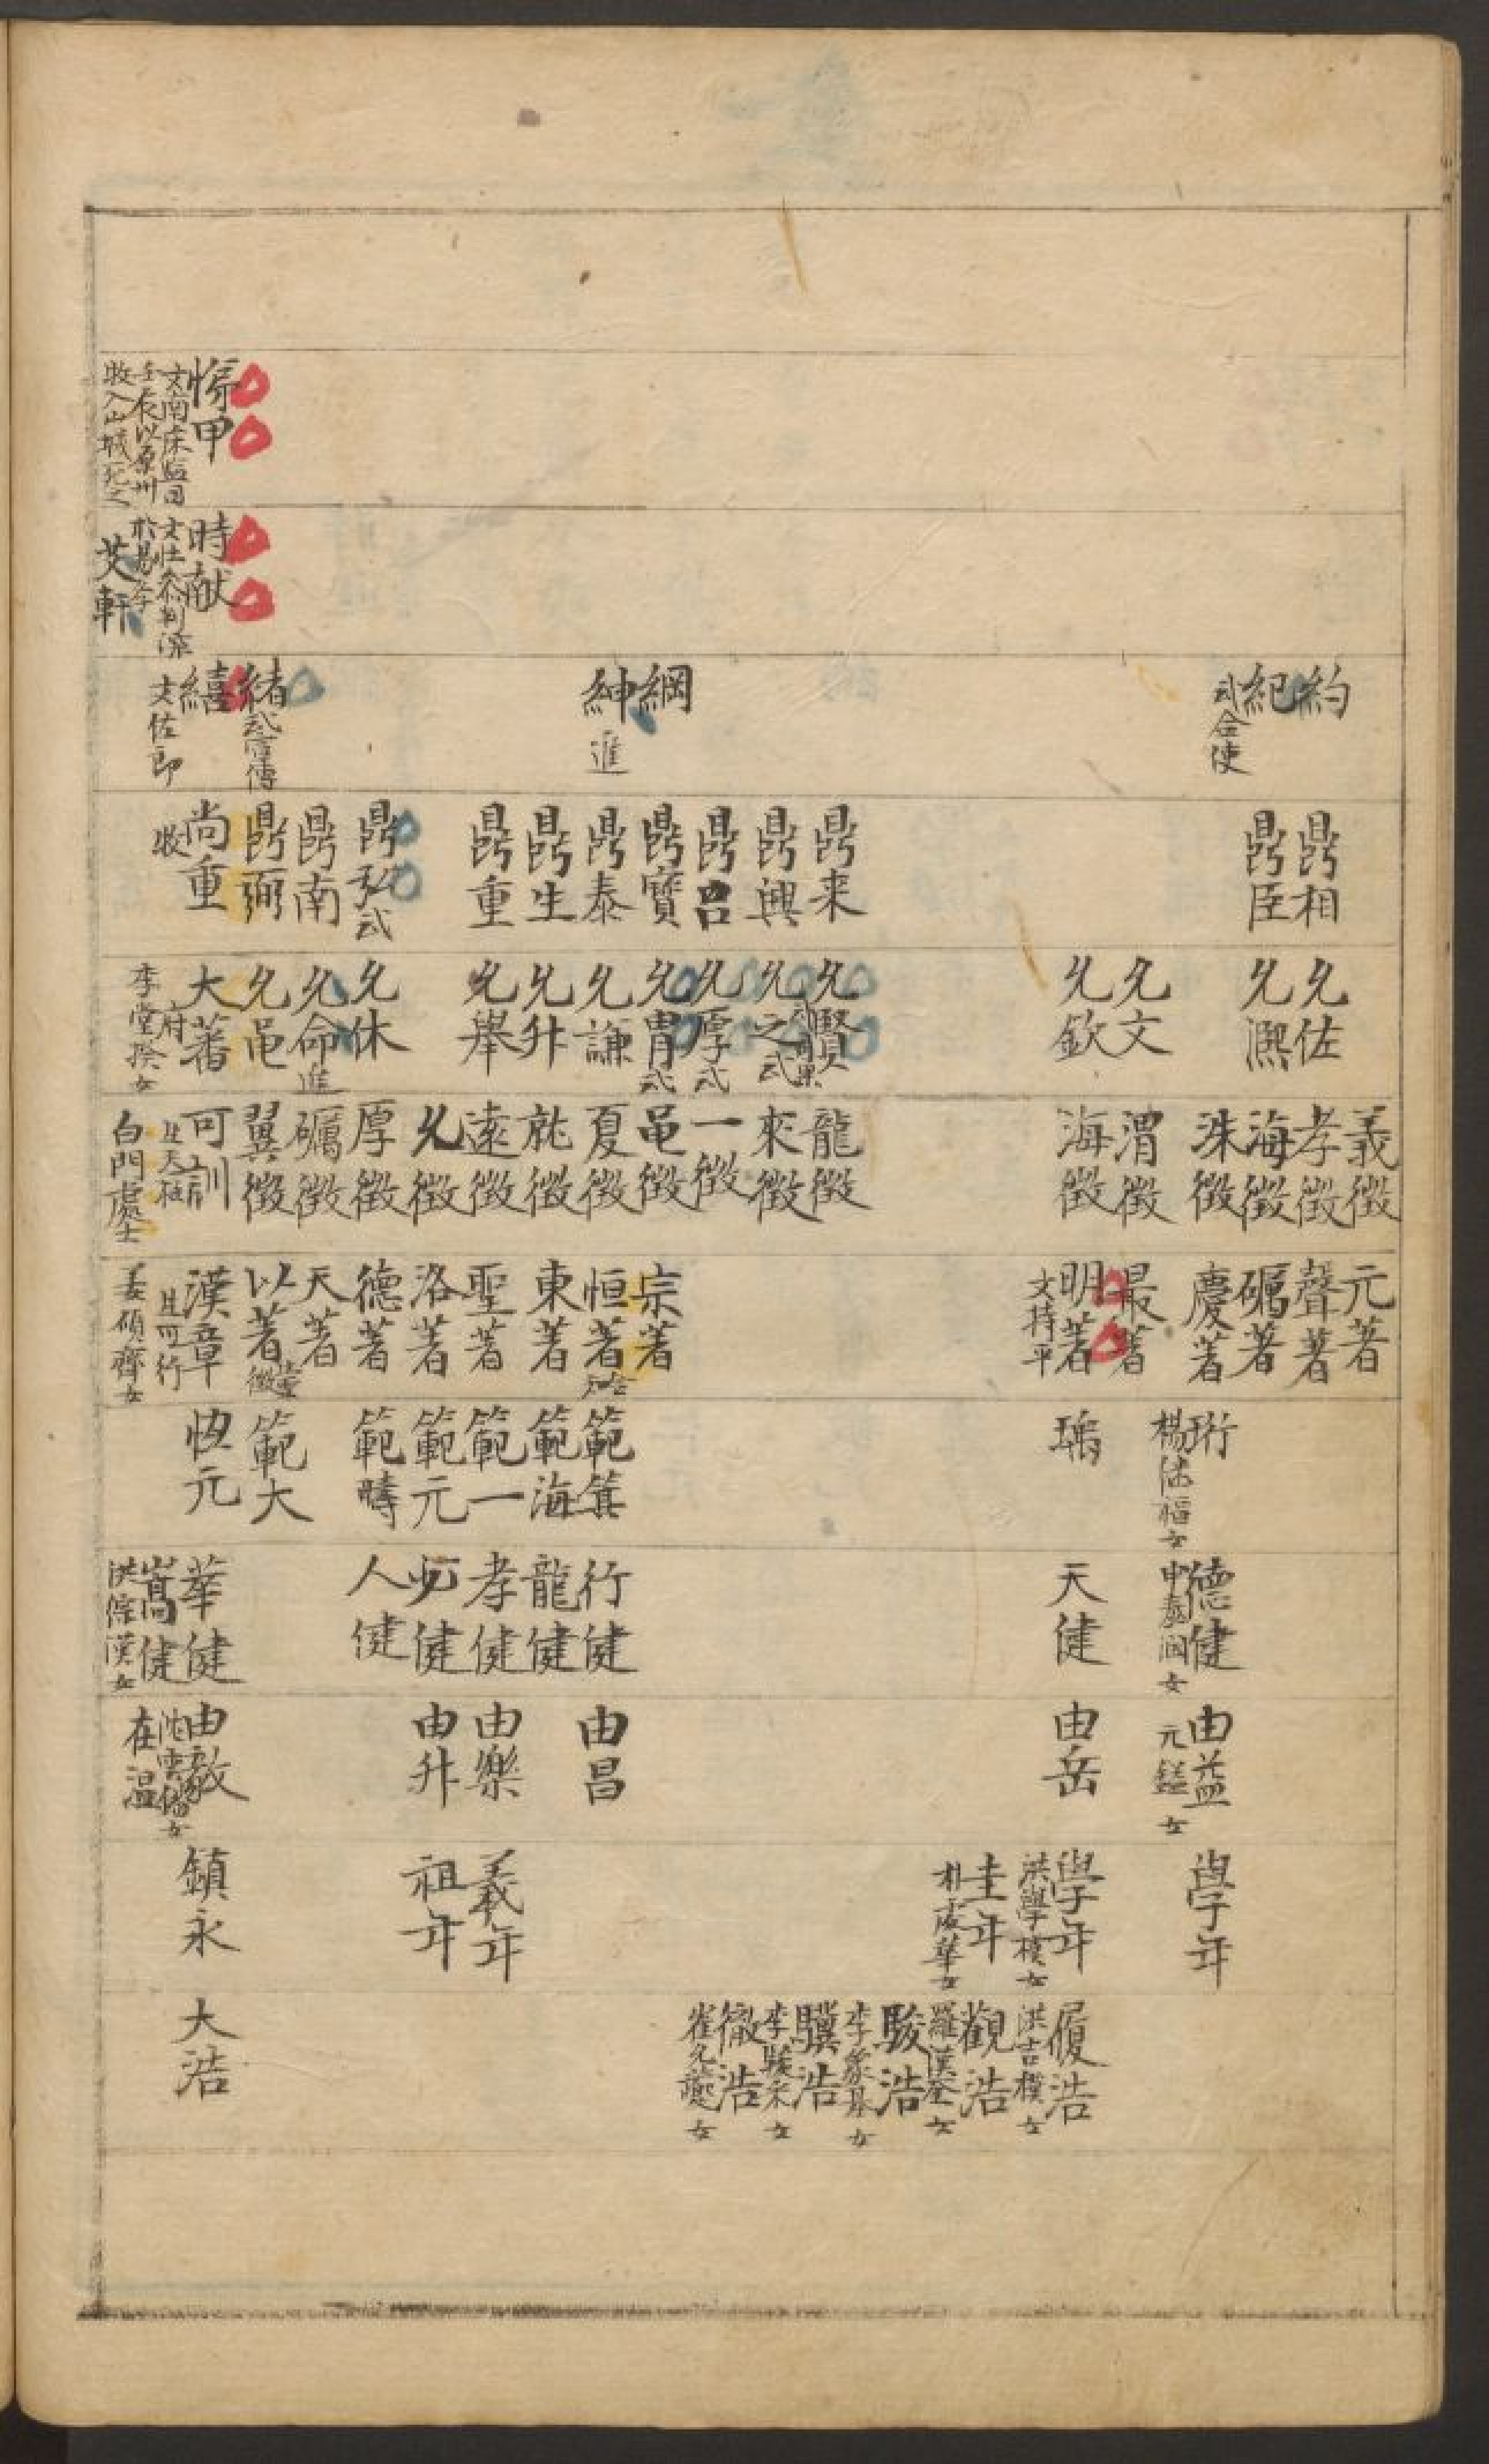 悌甲
文南床監司
壬辰以原州
牧入山城死之
時献
文仕參判謫
於易學
艾軒
約
紀
武合使
綱
紳
進
緒
武宣傳
繥
文佐郎
鼎相
鼎臣
鼎来
鼎興
鼎呂
鼎寶
鼎泰
鼎生
鼎重
鼎弘武
鼎南
鼎弼
尚重
牧
允佐
允熈
允文
允欽
允賢
允之武
允厚武
允胄武
允謙
允升
允舉
允休
允命進
允黽
大蓍
府
李堂揆女
義徵
孝徵
海徵
洙徵
渭徵
海徵
龍徵
來徵
一徵
黽徵
夏徵
就徵
遠徵
允徵
厚徵
礪徵
翼徵
可訓
生天徵
白門處士
元著
聲著
礪著
慶著
最著
明著
文持平
宗著
恒著
東著
聖著
洛著
德著
天著
以著
漢章
生可行
姜碩齊女
珩
瑀
範箕
範海
範一
範元
範疇
範大
恒元
德健
申泰
女
天健
行健
龍健
孝健
必健
人健
華健
嵩健
洪
漢女
由益
元鎰女
由岳
由昌
由樂
由升
由敎
在温
學年
學年
洪學模女
圭年
朴
華女
義年
祖年
鎮永
履浩
洪吉模女
觀浩
羅漢奎女
駿浩
李象基女
驥浩
李駿永女
徹浩
崔允
女
大浩